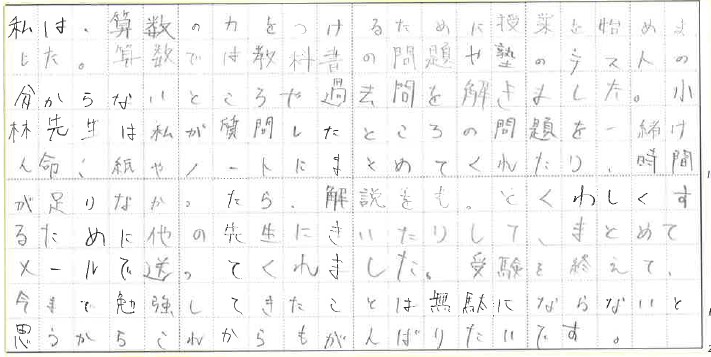 私は、算数の力をつけるために授業を始めま
した。算数では教科書の問題や塾のテストの
分からないところや過去問を解きました。小
林先生は私が質問したところの問題を一緒け
ん命、紙やノートにまとめてくれたり、時間
が足りなかったら、解説をもっとくわしくす
るために他の先生にきいたりして、まとめて
メールで送ってくれました。受験を終えて、
今まで勉強してきたことは無駄にならないと
思うからこれからもがんばりたいです。